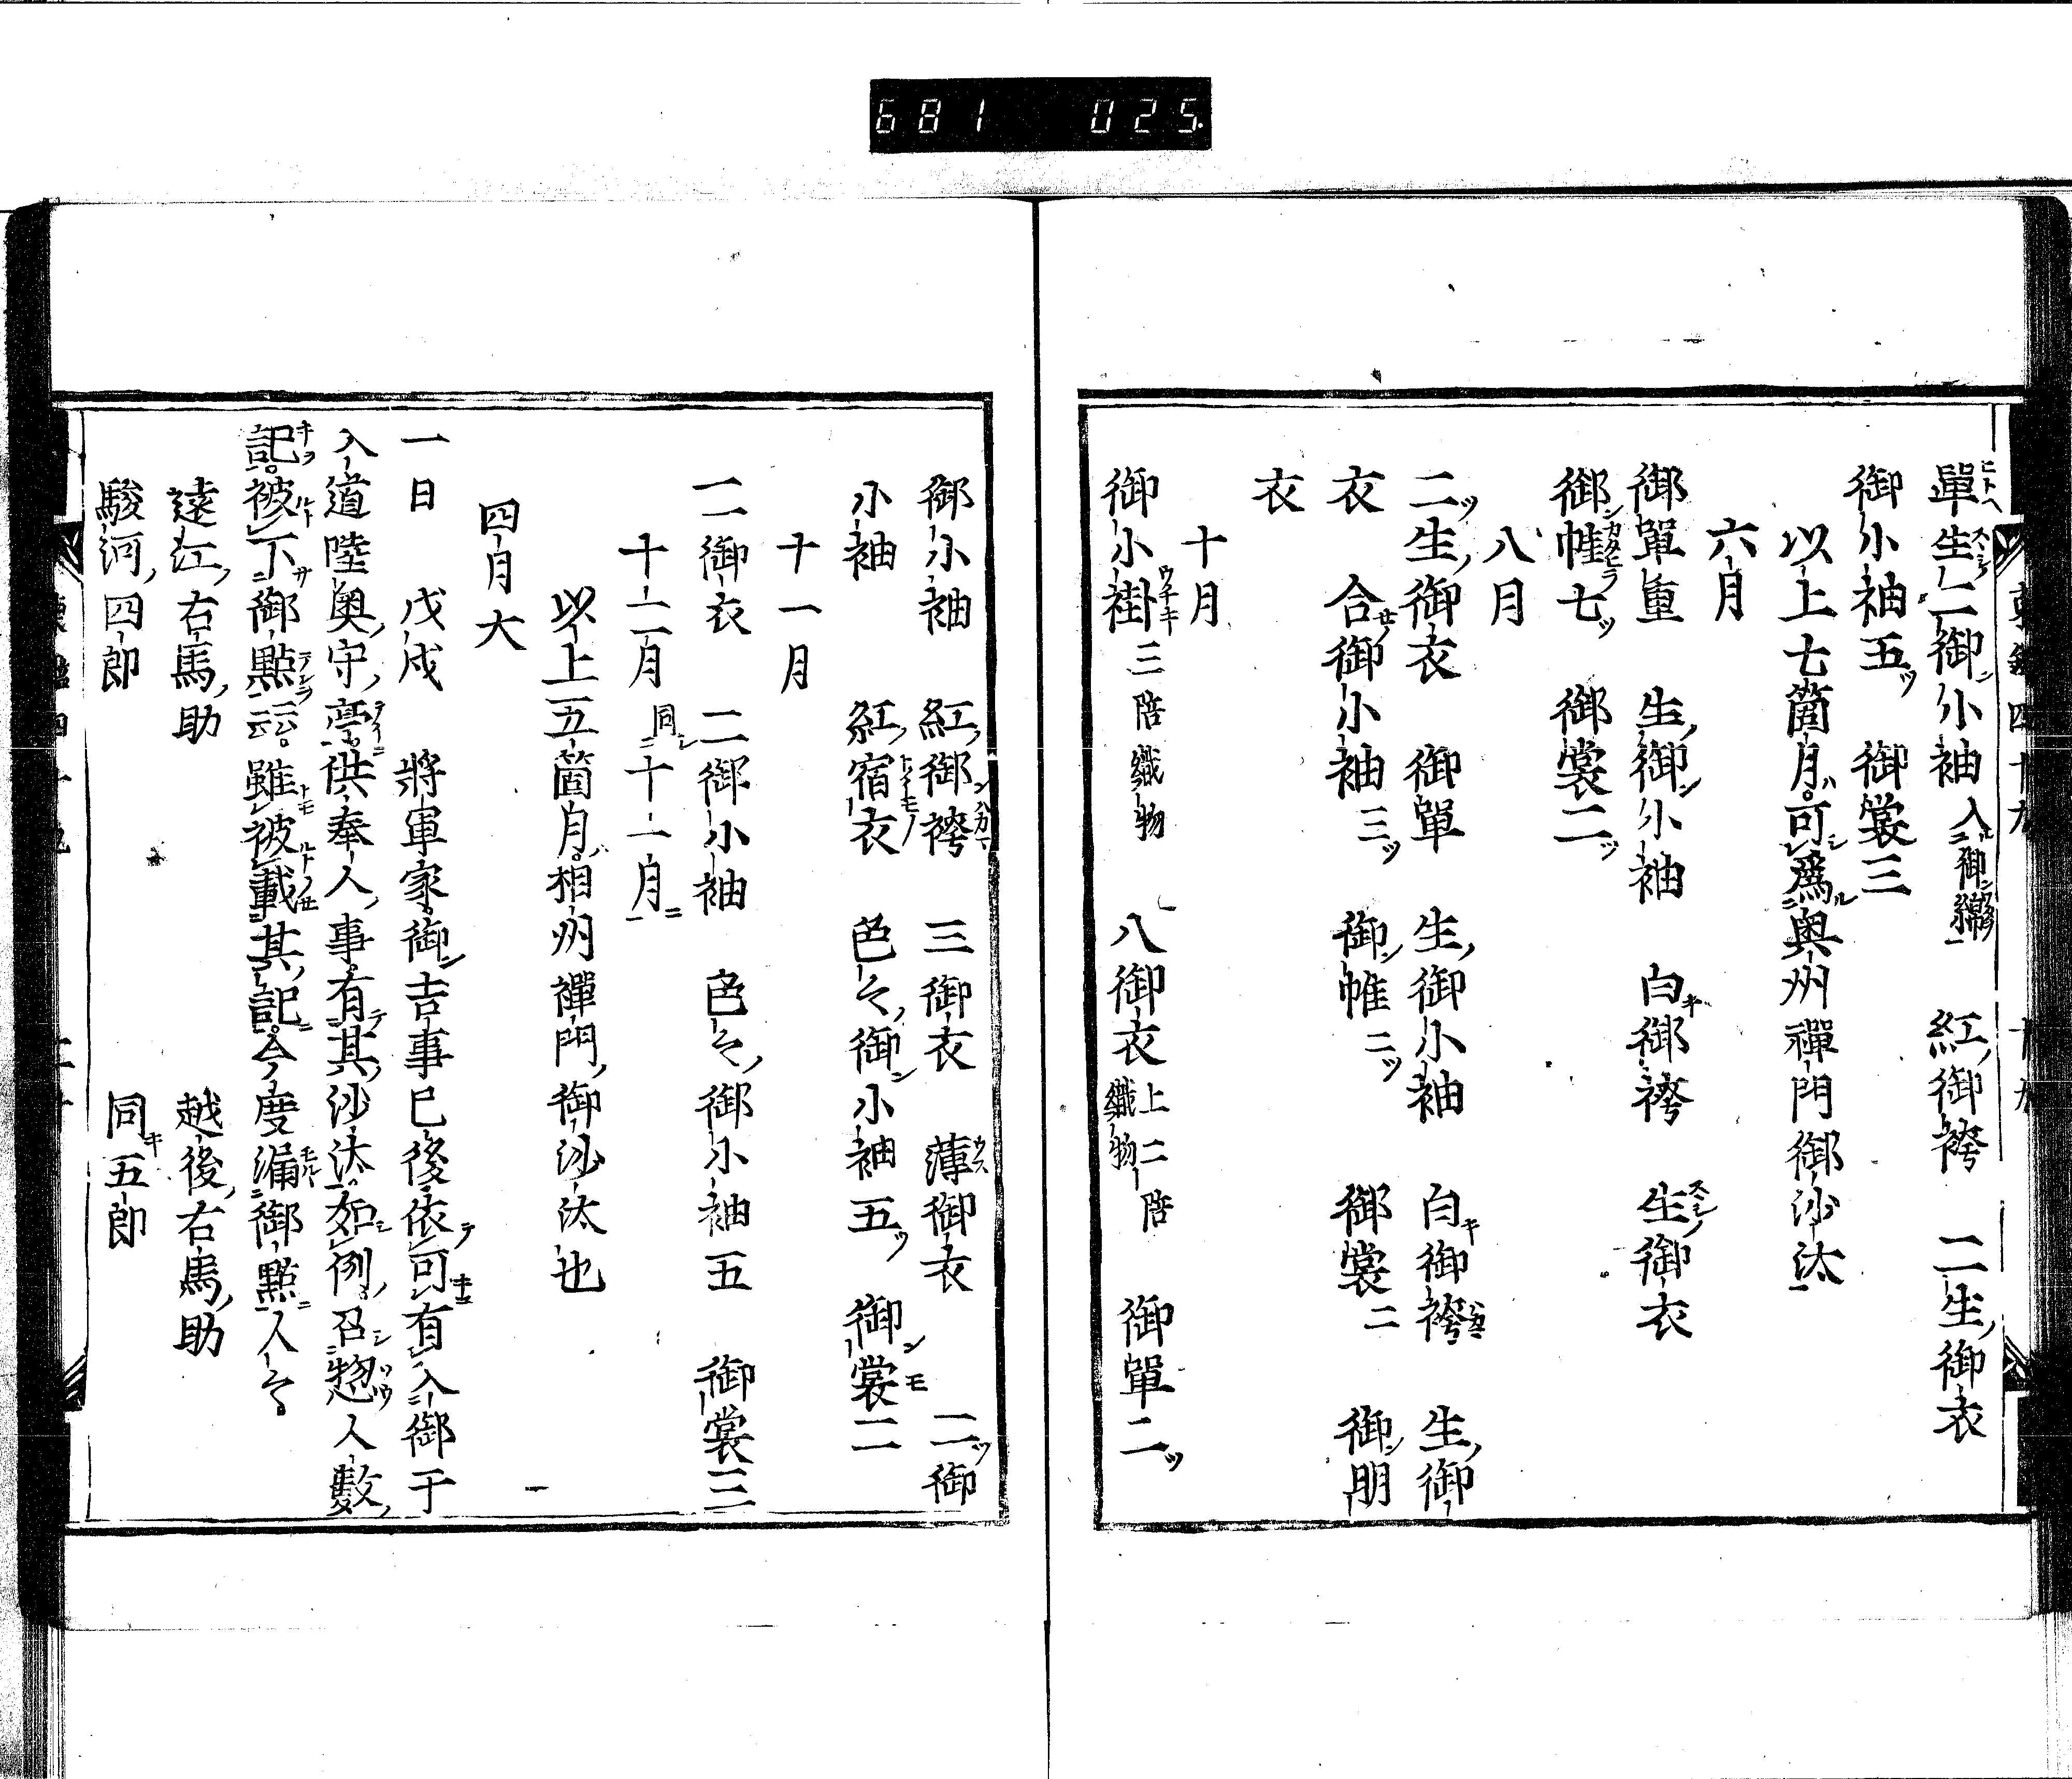 681 025
單生二御小袖 入御綿 紅御袴 二生御衣
御小袖五ツ 御裳三
以上七箇月可爲奥州禪門御沙汰
六月
御單重 生御小袖 白御袴 生御衣
御帷七ツ 御裳二ツ
八月
二ツ生御衣 御單 生御小袖 白御袴 生御
衣 合御小袖三ツ 御帷二ツ 御裳二 御明
衣
十月
御小褂三陪織物 八御衣上二陪織物 御單二ツ
御小袖 紅御袴 三御衣 薄御衣 二ツ御
小袖 紅宿衣 色々御小袖五ツ 御裳二
十一月
二御衣 二御小袖 色々御小袖五 御裳三
十二月 同十一月
以上五箇月相州禪門御沙汰也
四月大
一日 戊戌 將軍家御吉事已後依可有入御于
入道陸奥守亭供奉人事有其沙汰如例召惣人數
記被下御點云云雖被載其記今度漏御點人々
遠江右馬助 越後右馬助
駿河四郎 同五郎